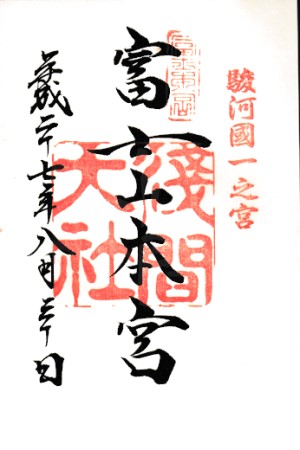 駿河國一之宮
富士山本宮
淺間
大社
平成二十七年八月三十日